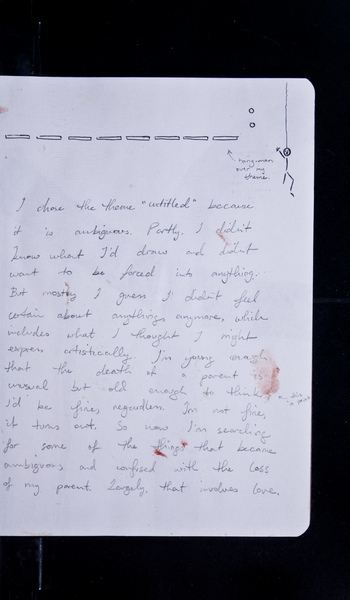 hangman
over my
theme.
I chose the theme "untitled" because
it is ambiguous. Partly, I didn't
know what I'd draw and didn't
want to be forced into anything.
But mostly I guess I didn't feel
certain about anythings anymore, which
includes what I thought I might
express artistically. I'm young enough
that the death of a parent is
unusual but old enough to think
I'd be fine, regardless. I'm not fine,
it turns out. So now I'm searching
for some of the things that became
ambiguous and confused with the loss
of my parent. Largely, that involves love.